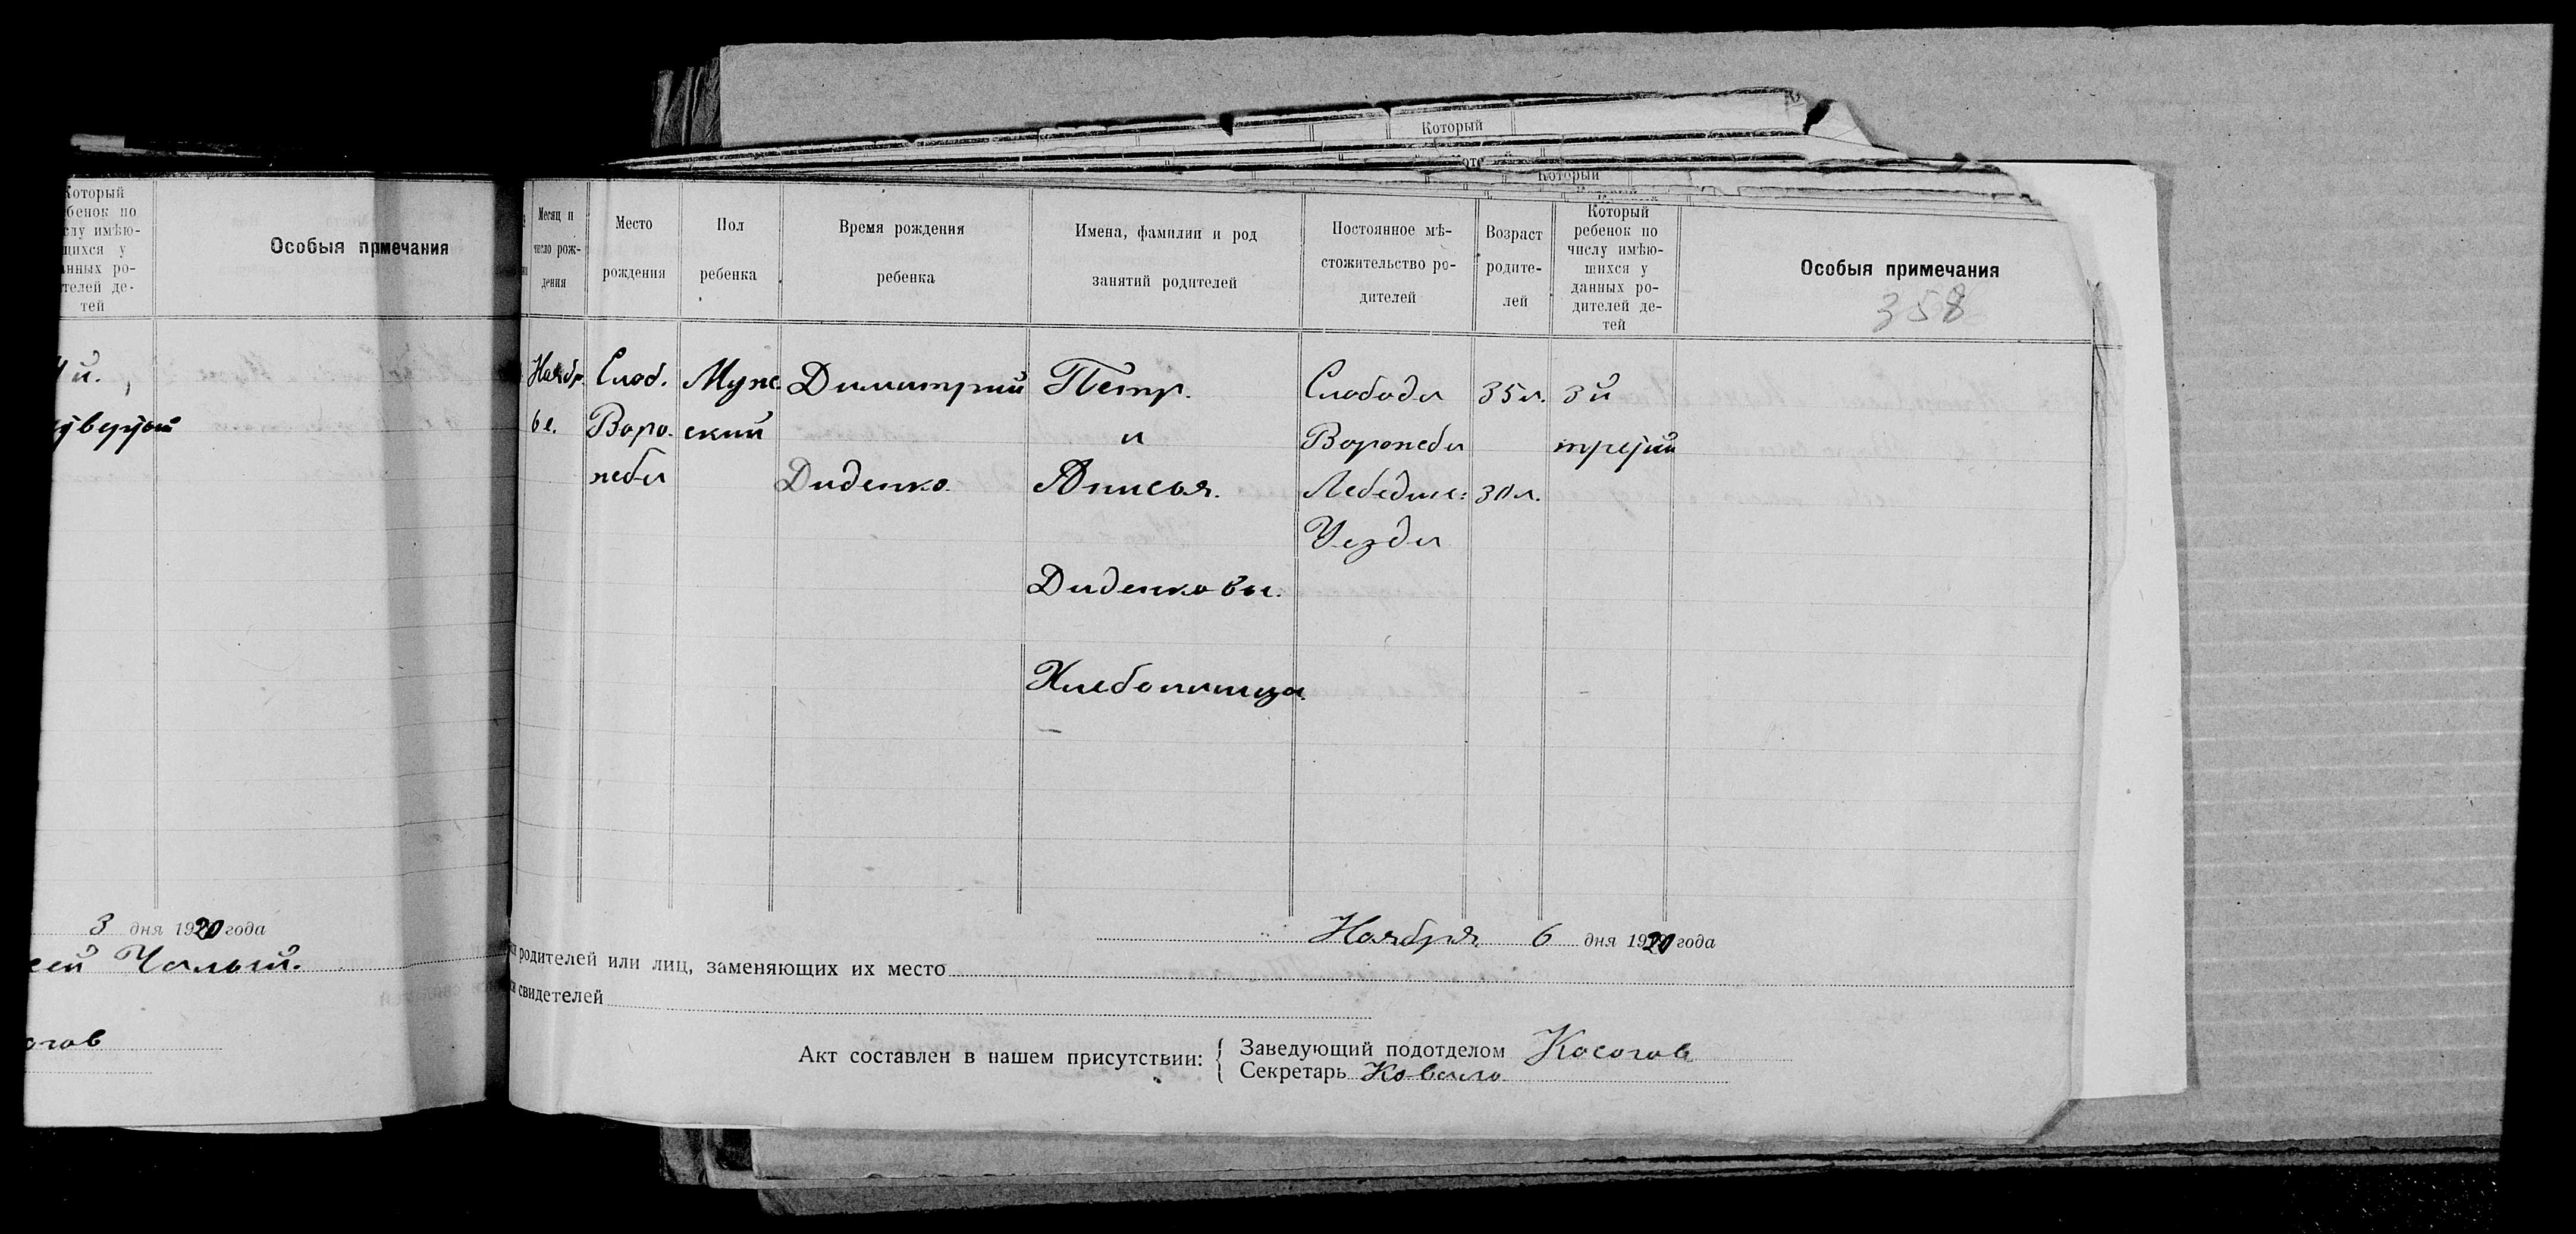 Который
Который
Который
ребенок по
числу имѣю-
щихся у
данных ро-
дителей де-
тей
Особыя примечания
й.
3 дня 1920 года
Чалый.
Месяц и
число рож-
дения
Место
рождения
Пол
ребенка
Время рождения
ребенка
Имена, фамилии и род
занятий родителей
Постоянное мѣ-
стожительство ро-
дителей
Возраст
родите-
лей
Который
ребенок по
числу имѣю-
шихся у
данных ро-
дителей де-
тей
Особыя примечания
358
Ноябр.
6 е.
Слоб.
Воро-
жебы
Муже
ский
Димитрий
Диденко.
Петр.
и
Анисья.
Диденковы.
Хлебопашца.
Слободы
Ворожебы
Лебедин:
Уезды
35 л.
30 л.
3 й
третий
Ноября 6 дня 1920 года
родителей или лиц, заменяющих их место
свидетелей
Акт составлен в нашем присутствии:
Заведующий подотделом Косогов
Секретарь Ковало